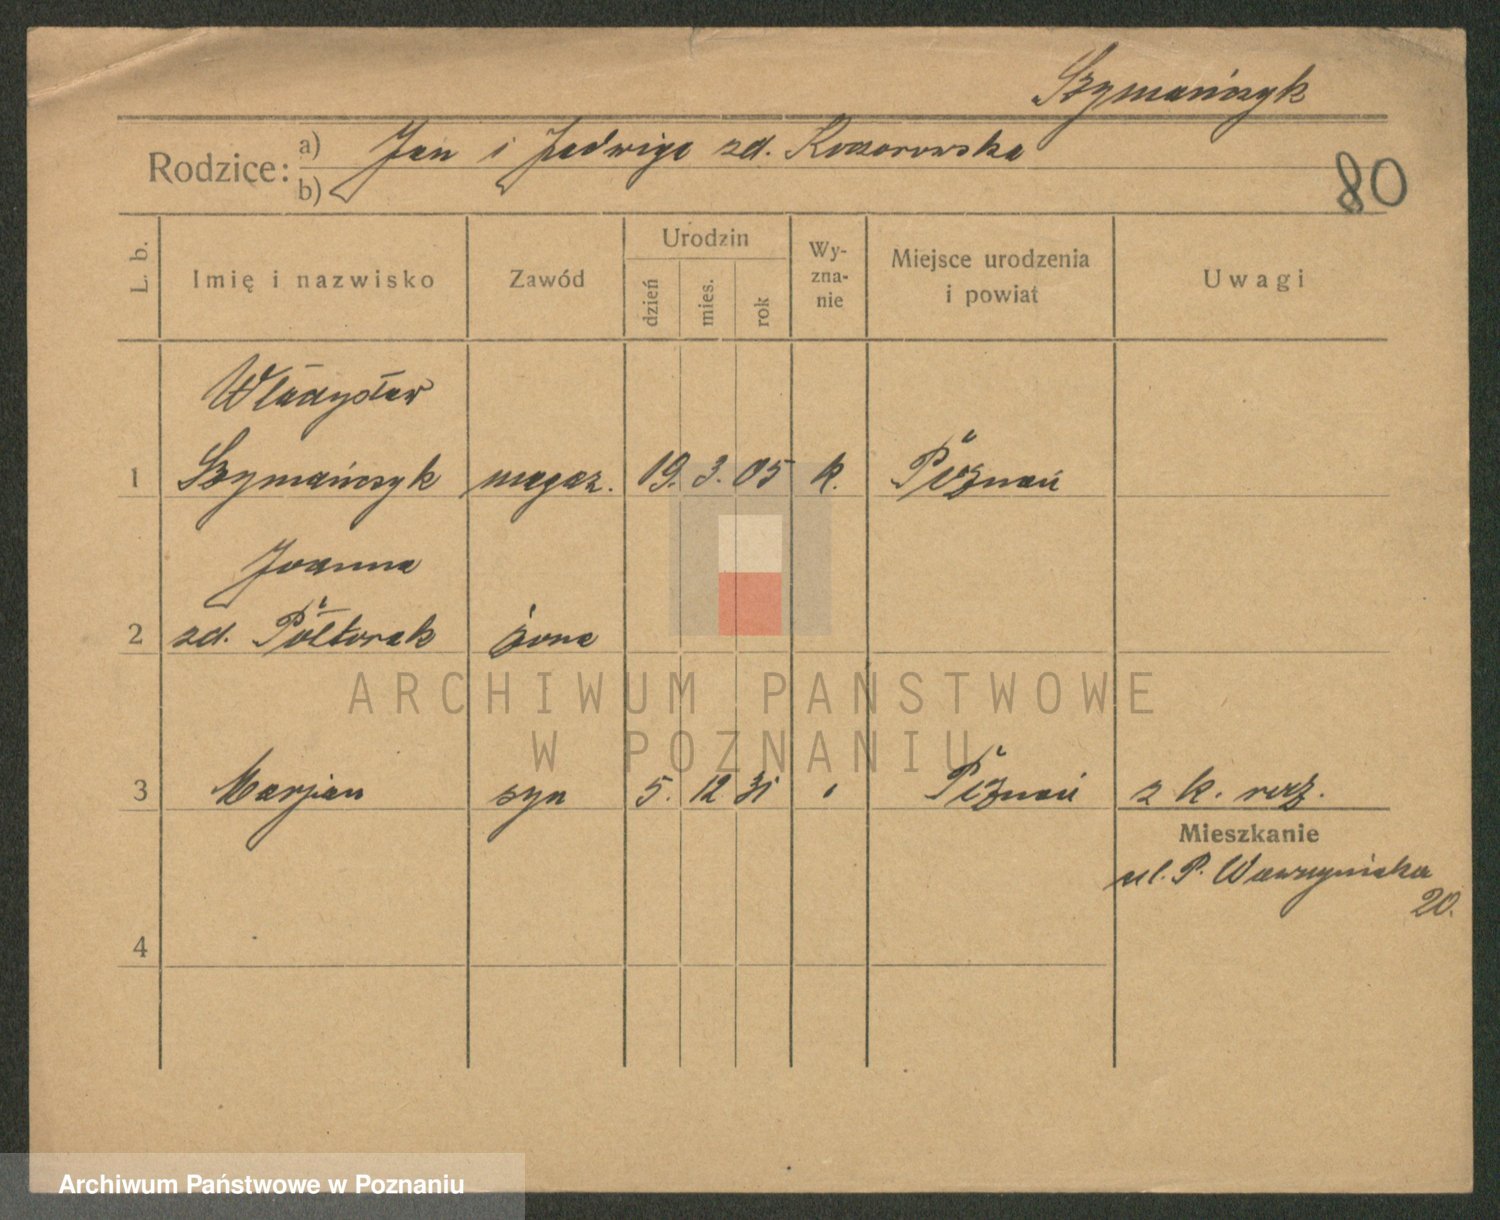 Szymańczyk
Rodzice: a) Jan i Jadwiga zd. Kozorowska
b)
80
L. b. Imię i nazwisko Zawód Urodzin dzień mies. rok Wy-zna-nie Miejsce urodzenia i powiat Uwagi
Władysław
1 Szymańczyk magaz. 19. 3. 05 k. Poznań
Joanna
2 zd. Półtorak żona
3 Marjan syn 5. 12 31 Poznań z k. roz.
Mieszkanie
ul. P. Wawrzyniaka
20.
4
ARCHIWUM PAŃSTWOWE
W POZNANIU
Archiwum Państwowe w Poznaniu